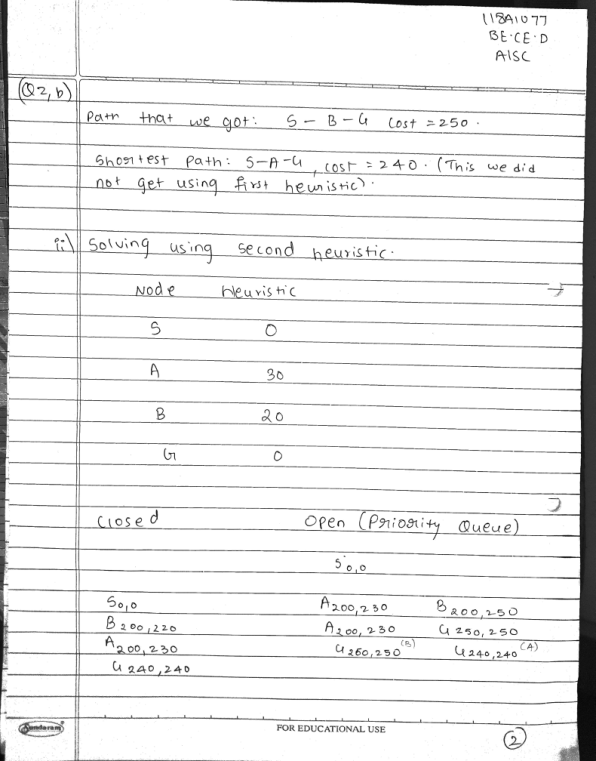 118A1077
BE-CE-D
AISC
(Q2,b)
Path that we got: S - B - G Cost = 250.
Shortest Path: S-A-G, cost = 240. (This we did
not get using first heuristic).
ii) Solving using second heuristic.
Node Heuristic
S 0
A 30
B 20
G 0
Closed Open (Priority Queue)
S0,0
S0,0 A200,230 B200,250
B200,220 A200,230 G250,250
A200,230 G250,250 (B) G240,240 (A)
G240,240
Sundaram
FOR EDUCATIONAL USE
2